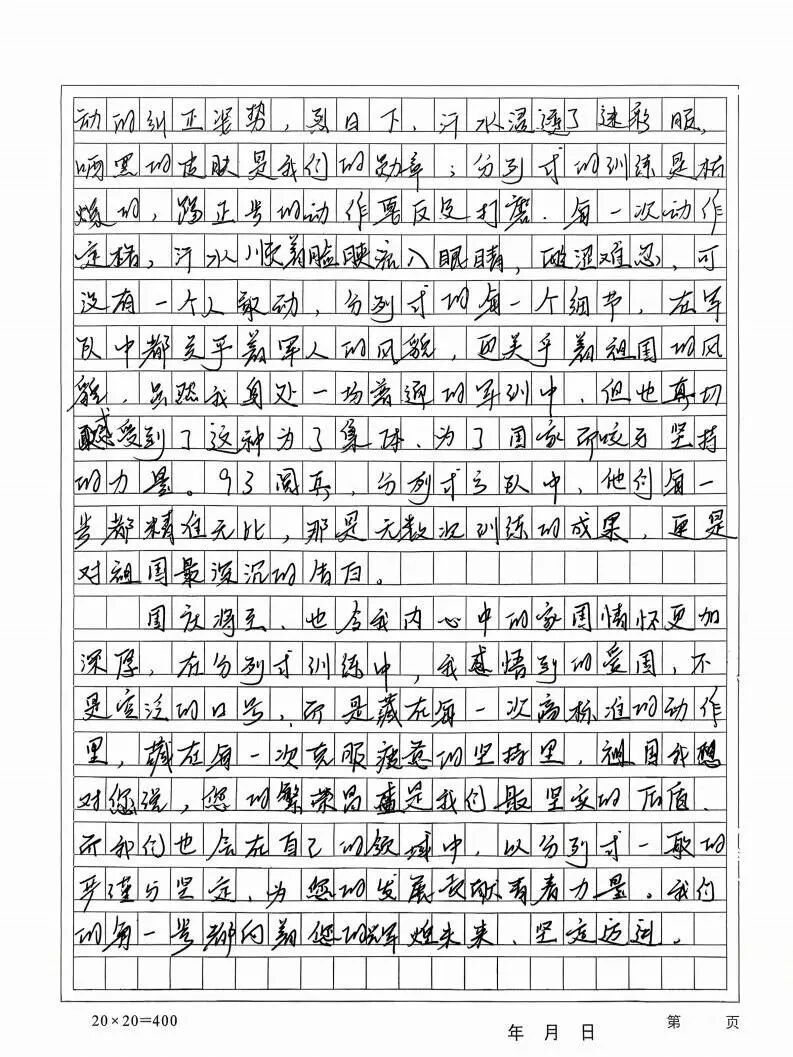 动的纠正姿势，烈日下，汗水浸透了迷彩服，
晒黑的皮肤是我们的勋章；分列式的训练是枯
燥的，踢正步的动作要反复打磨．每一次动作
定格，汗水顺着脸颊流入眼睛，酸涩难忍，可
没有一个人敢动，分列式的每一个细节，在军
队中都关乎着军人的风貌，更关乎着祖国的风
貌，虽然我身处一场普通的军训中，但也真切
感受到了这种为了集体、为了国家而咬牙坚持
的力量。93阅兵，分列式方队中，他们每一
步都精准无比，那是无数次训练的成果，更是
对祖国最深沉的告白。
国庆将至，也令我内心中的家国情怀更加
深厚，在分列式训练中，我感悟到的爱国，不
是空泛的口号，而是藏在每一次高标准的动作
里，藏在每一次克服疲惫的坚持里，祖国我想
对您说，您的繁荣昌盛是我们最坚实的后盾．
而我们也会在自己的领域中，以分列式一般的
严谨与坚定，为您的发展贡献青春力量。我们
的每一步都向着您的辉煌未来、坚定迈进。
20×20=400
年 月 日
第 页